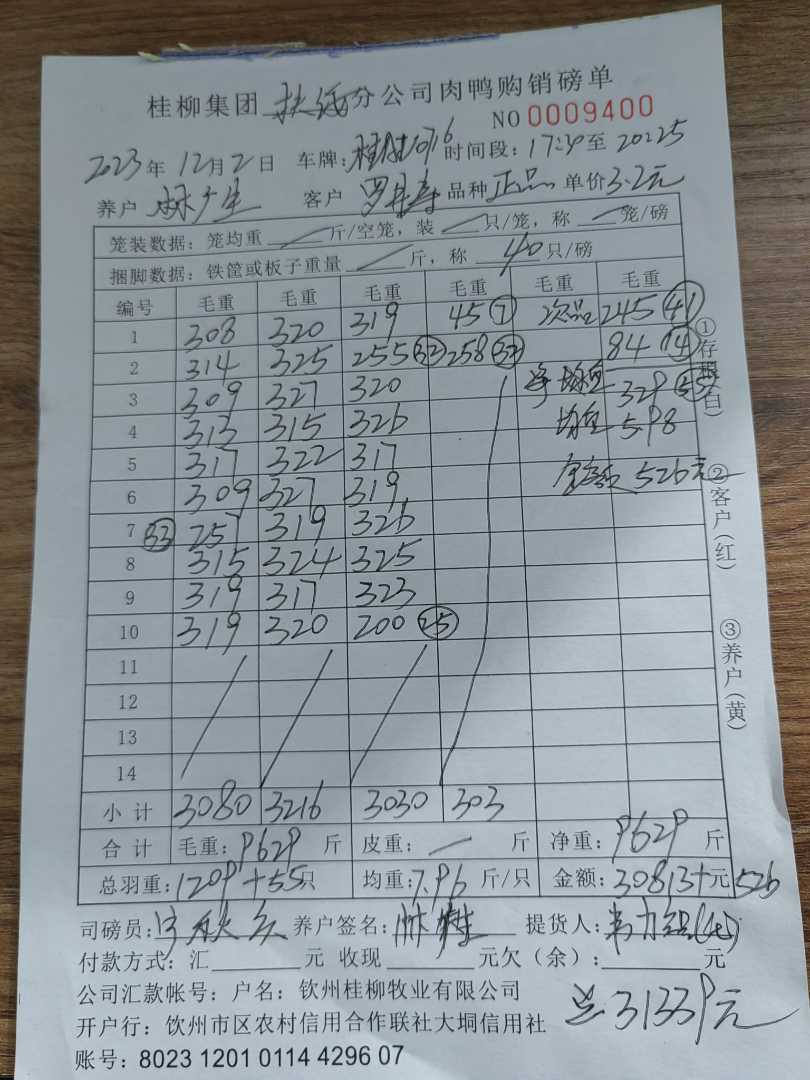 桂柳集团 扶绥 分公司肉鸭购销磅单
NO 0009400
2023年 12月 2日 车牌: 时间段: 17:24 至 20:25
养户 林广生 客户 罗其寿 品种 正品 单价 3.2元
笼装数据: 笼均重 / 斤/空笼, 装 / 只/笼, 称 / 笼/磅
捆脚数据: 铁筐或板子重量 / 斤, 称 40 只/磅
编号 毛重 毛重 毛重 毛重 毛重 毛重
1 308 320 319 45 ⑦ 次品 245 ㊶
2 314 325 255 ㉜ 258 84 ⑭
3 309 327 320 均重 329 55
4 313 315 326 均重 5.98
5 317 322 317 金额 526元
6 309 327 319
7 ㉝ 257 319 326
8 315 324 325
9 319 317 323
10 319 320 200 ㉕
11
12
13
14
小计 3080 3216 3030 303
合计 毛重: 9629 斤 皮重: / 斤 净重: 9629 斤
总羽重: 1209+55 只 均重: 7.96 斤/只 金额: 30813+元 526
司磅员: 养户签名: 提货人:
付款方式: 汇 元 收现 元欠(余): 元
公司汇款帐号: 户名: 钦州桂柳牧业有限公司
开户行: 钦州市区农村信用合作联社大垌信用社
总31339元
账号: 8023 1201 0114 4296 07
①存根(白)
②客户(红)
③养户(黄)